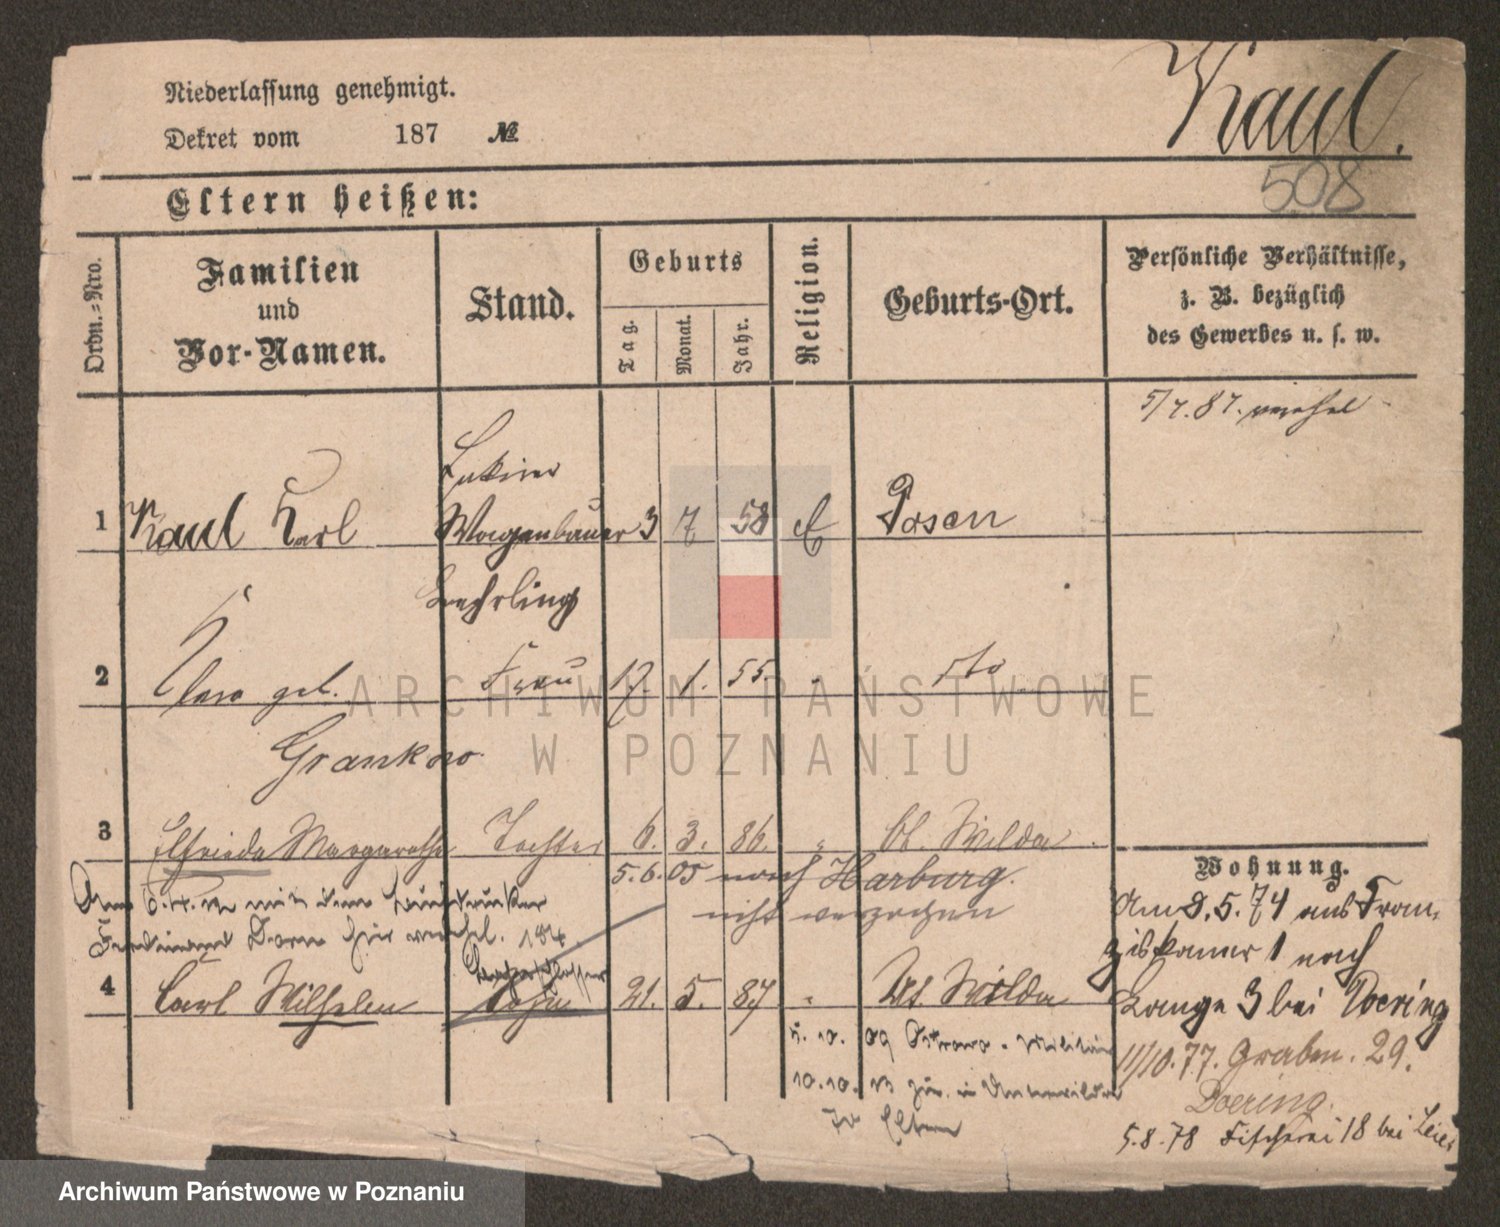 Niederlassung genehmigt.
Dekret vom 187 №
Kaul.
508
Eltern heißen:
Ordn.-Nro.
Familien
und
Vor-Namen.
Stand.
Geburts
Tag.
Monat.
Jahr.
Religion.
Geburts-Ort.
Persönliche Verhältnisse,
z. B. bezüglich
des Gewerbes u. s. w.
5/7.87.
Lakirer
1 Kaul Karl Wagenbauer 3 7 58 E Posen
Lehrling
2 Clara geb. Frau 17. 1. 55. " dto
3 Elfrieda Margarethe Tochter 6. 3. 86. " Wilda
5.6.05 nach Harburg.
nicht verzogen
Am mit dem
Ferdinand Dorn hier
4 Carl Wilhelm Sohn 21. 5. 87 " Wilda
5. 10. 09 Ostrowo - Militär
10.10. in Unterwilda
Eltern
Wohnung.
Am 8.5.74 aus Fran,
ziskaner 1 nach
Lange 3 bei Doering
11/10.77. Graben. 29.
Doering.
5.8.78 Fischerei 18 bei
ARCHIWUM PAŃSTWOWE
W POZNANIU
Archiwum Państwowe w Poznaniu